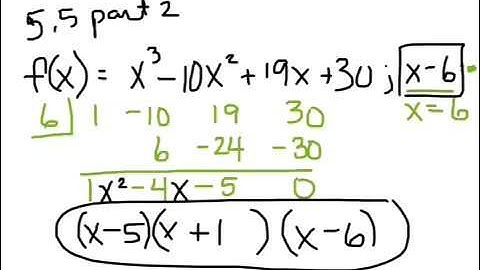 5.5 part 2
f(x) = x³-10x²+19x+30 ; x-6
x=6
6 1 -10 19 30
6 -24 -30
1x²-4x-5 0
(x-5)(x+1 )(x-6)